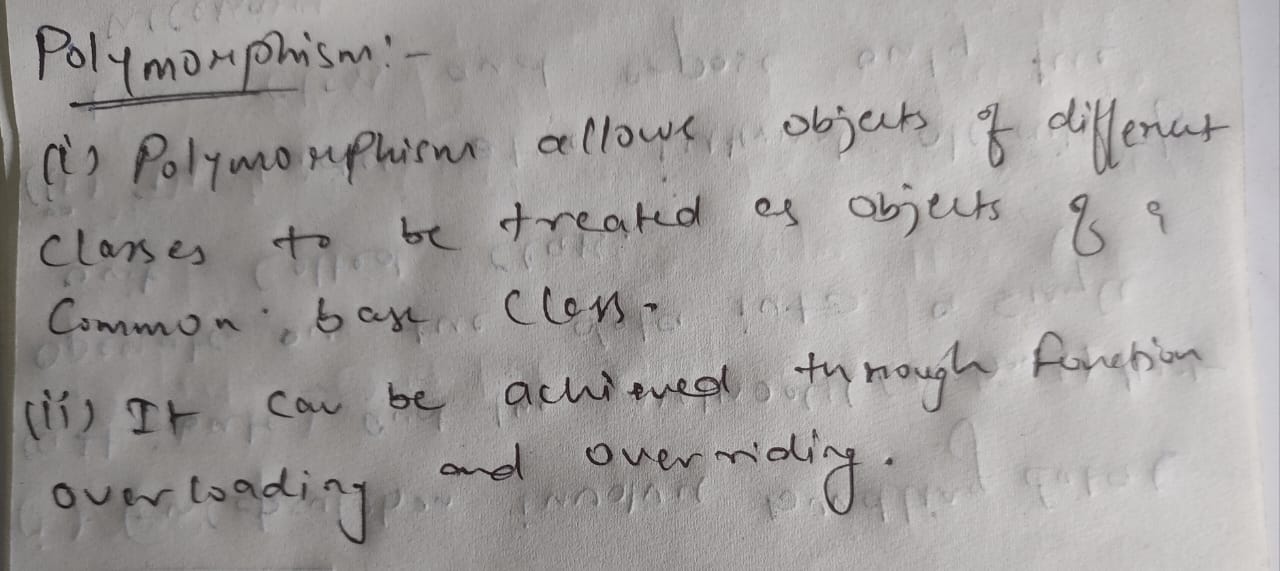 Polymorphism:-
(i) Polymorphism allows objects of different
classes to be treated as objects of a
Common base class.
(ii) It can be achieved through function
overloading and overriding.